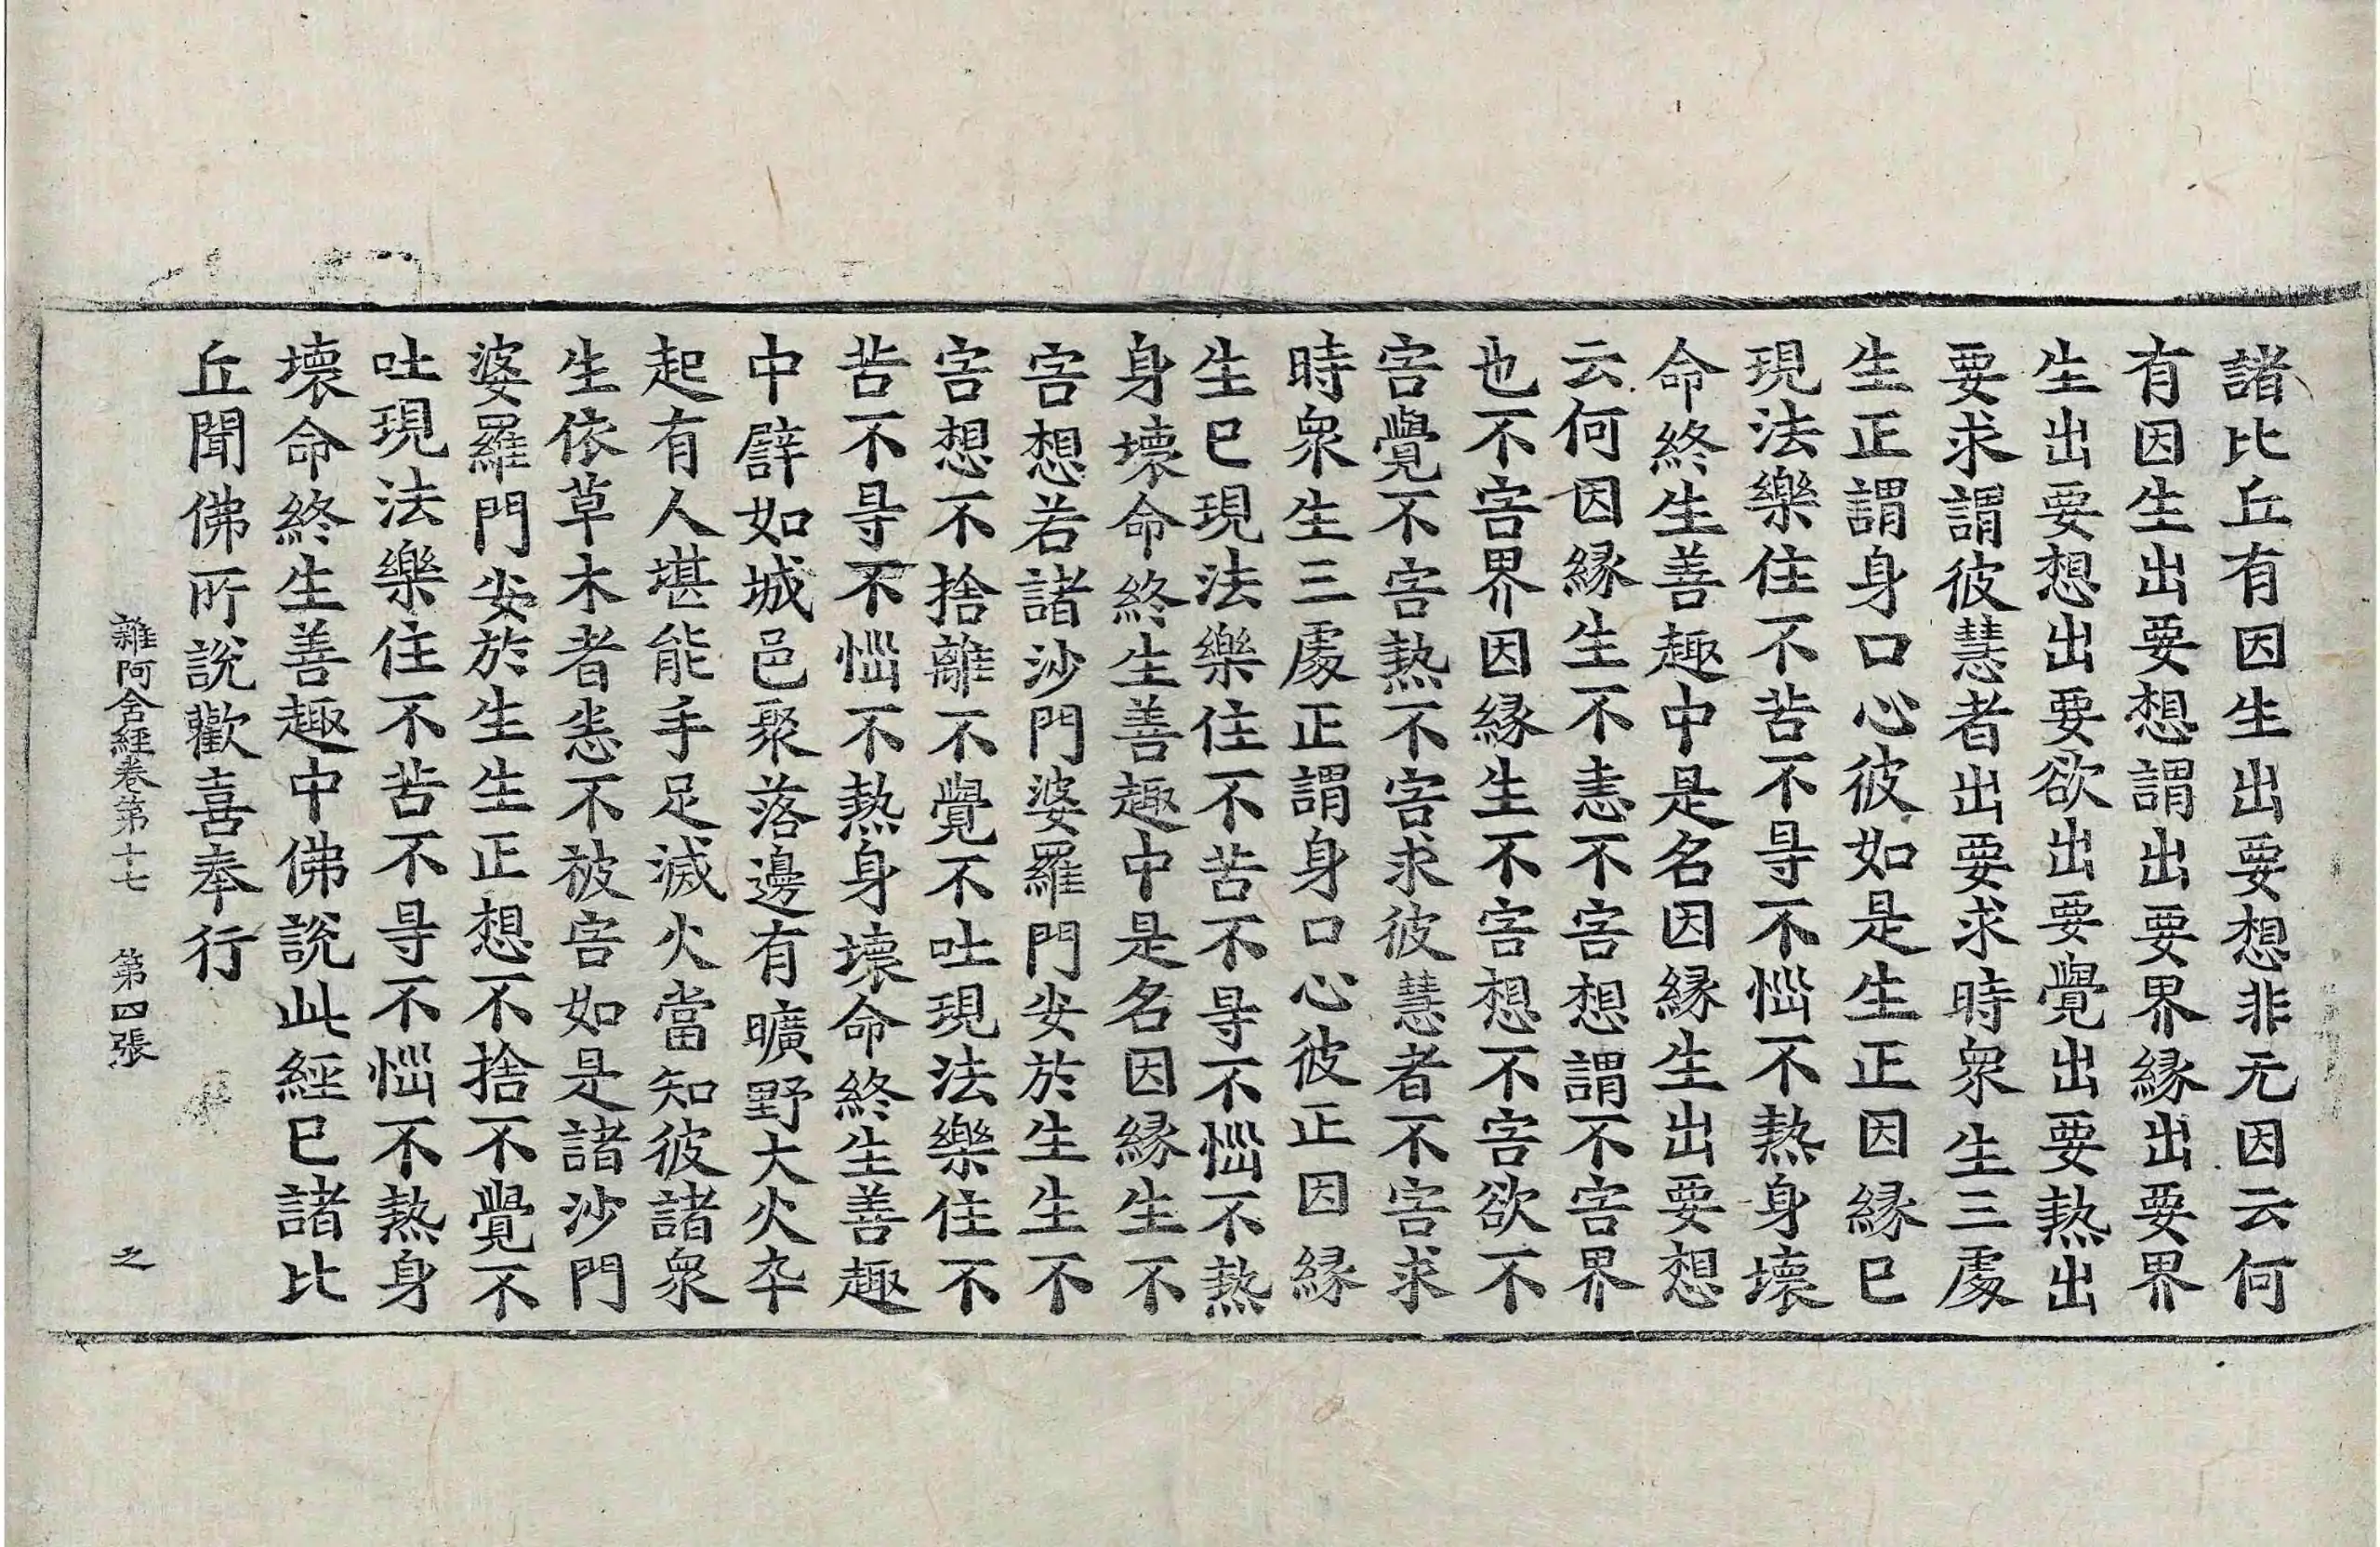 諸比丘有因生出要想非无因云何
有因生出要想謂出要界縁出要界
生出要想出要欲出要覺出要熱出
要求謂彼慧者出要求時衆生三處
生正謂身口心彼如是生正因縁已
現法樂住不苦不㝵不惱不熱身壞
命終生善趣中是名因縁生出要想
云何因縁生不恚不害想謂不害界
也不害界因縁生不害想不害欲不
害覺不害熱不害求彼慧者不害求
時衆生三處正謂身口心彼正因縁
生已現法樂住不苦不㝵不惱不熱
身壞命終生善趣中是名因縁生不
害想若諸沙門婆羅門安於生生不
害想不捨離不覺不吐現法樂住不
苦不㝵不惱不熱身壞命終生善趣
中譬如城邑聚落邊有曠野大火卒
起有人堪能手足滅火當知彼諸衆
生依草木者悉不被害如是諸沙門
婆羅門安於生生正想不捨不覺不
吐現法樂住不苦不㝵不惱不熱身
壞命終生善趣中佛說此經已諸比
丘聞佛所說歡喜奉行
雜阿含經卷第十七 第四張 之